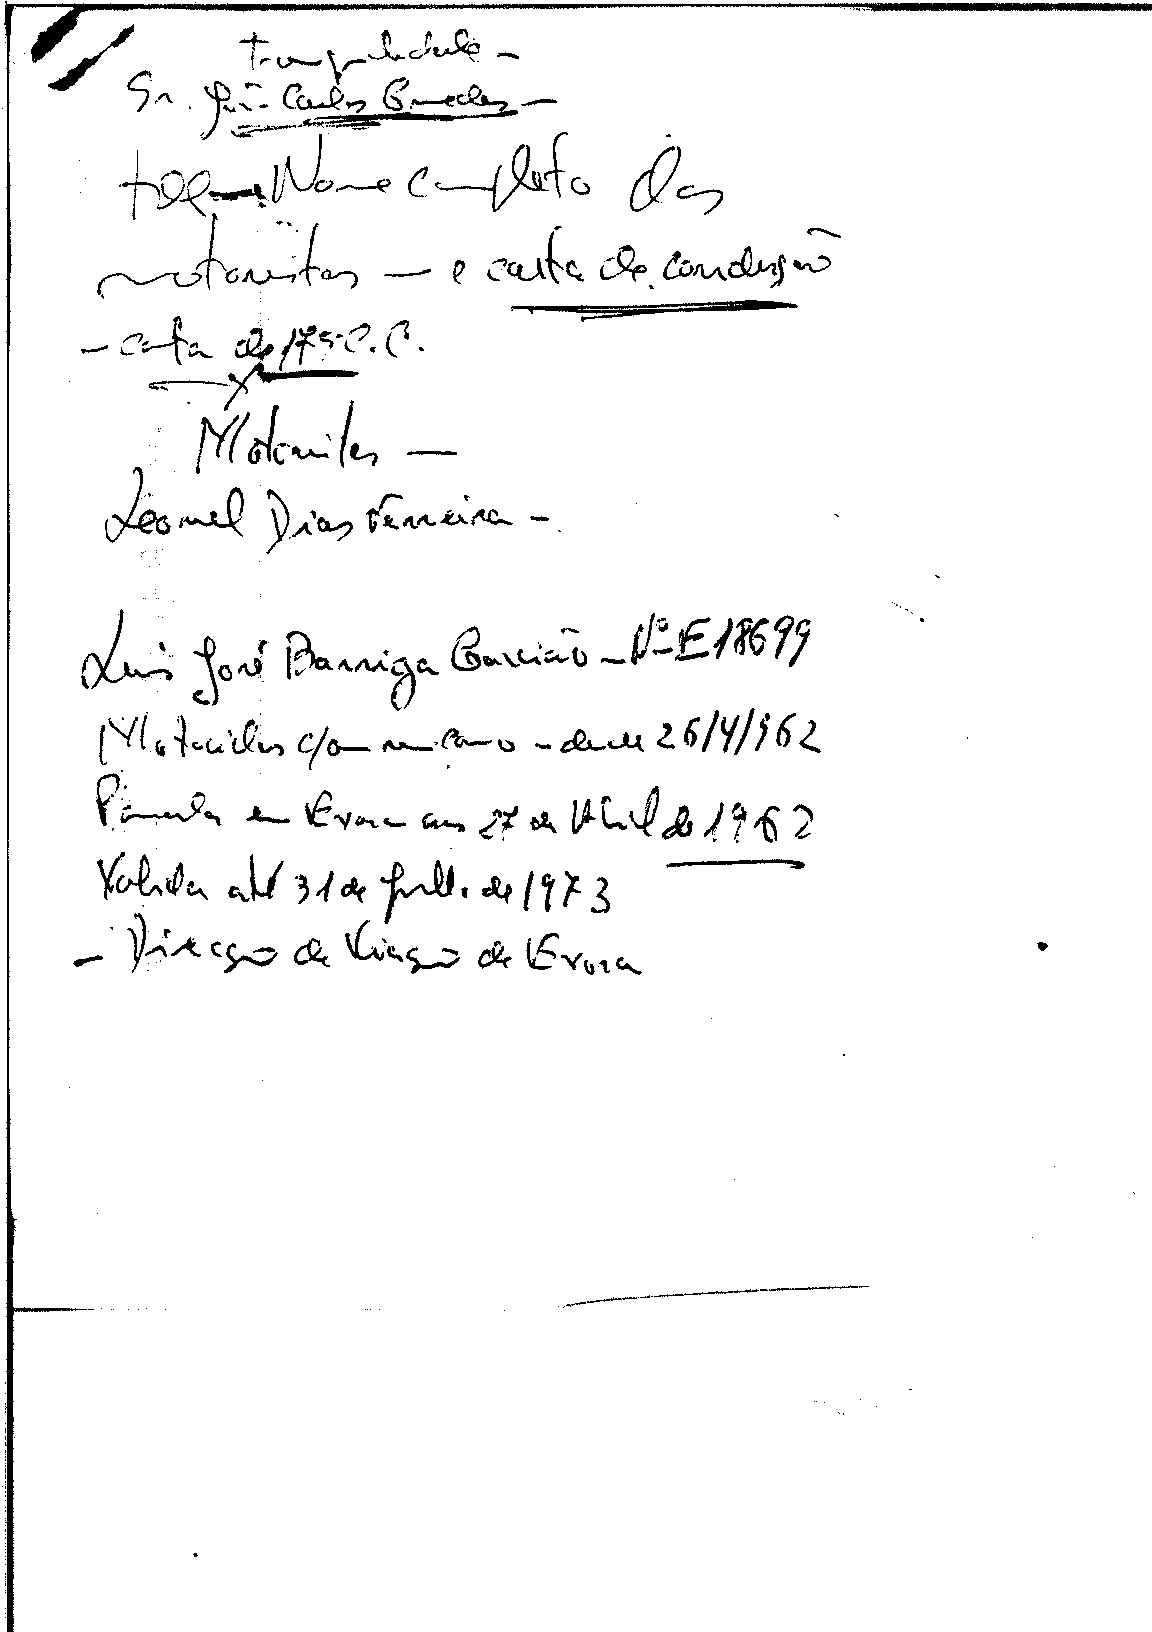 Tranquilidade -
Sr. João Carlos Guedes -
Nome completo dos
motoristas - e carta de condução
- carta de 175 C.C.
Motoristas -
Leonel Dias Ferreira -
Luis José Barriga Gavião - Nº E 18699
Motociclos c/ou sem carro - desde 26/4/962
Passada em Evora aos 27 de Abril de 1962
Valida até 31 de Julho de 1973
- Direcção de Viação de Evora